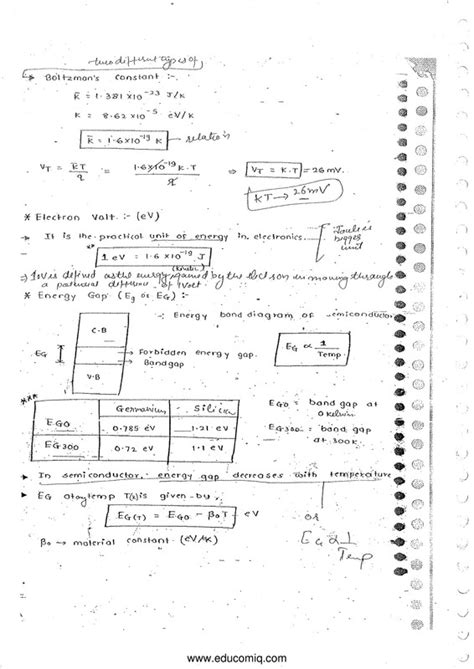 two different types of
→ Boltzman's constant :-
k̄ = 1.381 x10⁻²³ J/K
K = 8.62 x10⁻⁵ eV/K
k̄ = 1.6x10⁻¹⁹ K → relation
V_T = k̄T/q = 1.6x10⁻¹⁹ K.T/q ⇒ V_T = K.T = 26mV.
KT → 26mV
* Electron Volt :- (eV)
→ It is the practical unit of energy in electronics. Joule is bigger unit
1 eV = 1.6 x10⁻¹⁹ J
(Joules)
⇒ 1eV is defined as the energy gained by the in moving through
a potential difference of 1Volt.
* Energy Gap (Eg or EG) :-
:- Energy band diagram of semiconductor
C.B
EG Forbidden energy gap.
Bandgap
V.B
EG ∝ 1/Temp.
***
Germanium Silicon
EG0 0.785 eV 1.21 eV
EG300 0.72 eV 1.1 eV
EG0 = band gap at 0 kelvin
EG300 = band gap at 300K.
→ In semiconductor, energy gap decreases with temperature
→ EG at any temp T(k) is given by,
EG(T) = EG0 - β0T eV
or
EG ∝ 1/Temp
β0 → material constant (eV/K)
www.educomiq.com